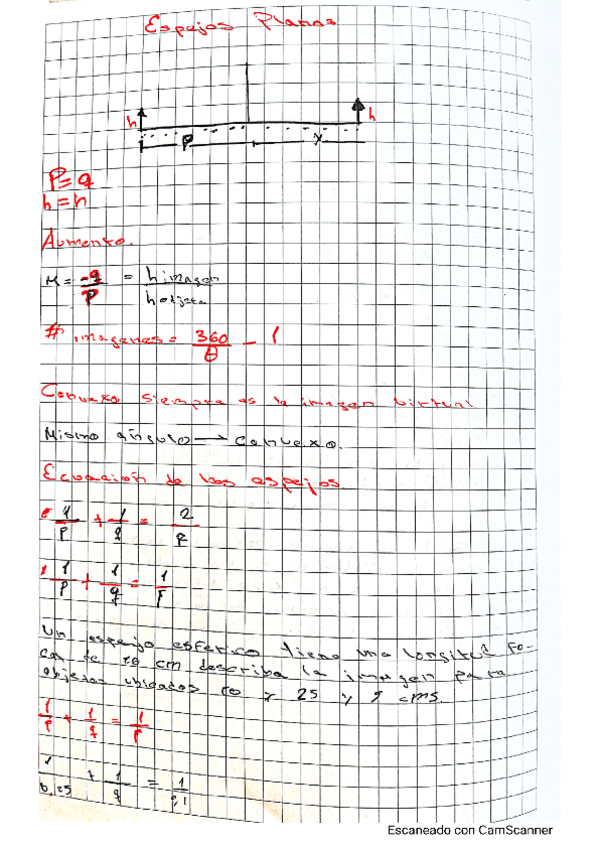 Espejos Planos
h h
P y
P = q
h = h
Aumento.
M = -q/P = h imagen/h objeto
# imagenes = 360/θ - 1
Convexo siempre es la imagen virtual
Mismo ángulo → convexo.
Ecuación de los espejos
1/P + 1/q = 2/R
1/P + 1/q = 1/F
Un espejo esferico tiene una longitud fo-
cal de 10 cm describa la imagen para
objetos ubicados 10 y 25 y 5 cms.
1/P + 1/q = 1/F
1/0,25 + 1/q = 1/0,1
Escaneado con CamScanner